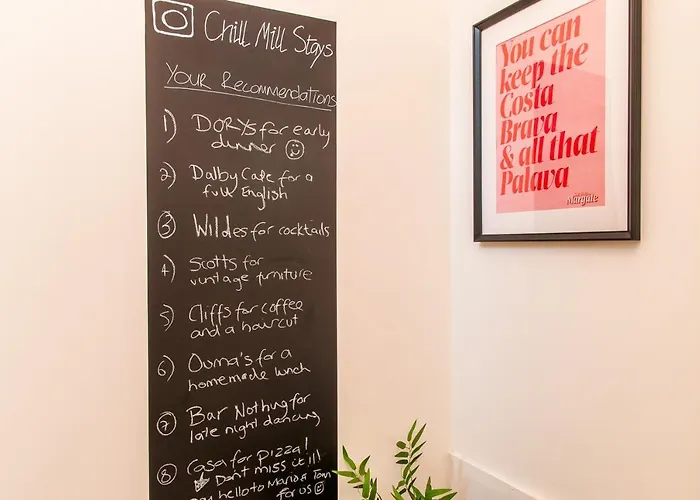 Chill Mill Stays
Your Recommendations
1) DORYS for early
dinner
2) Dalby Cafe for a
full English
3 Wildes for cocktails
4) Scotts for
vintage furniture
5) Cliffs for coffee
and a haircut
6) Ouma's for a
homemade lunch
7 Bar Nothing for
late night dancing
8 Casa for Pizza!
Dont miss it!!!
hello to Mario & Tom
for us
You can
keep the
Costa
Brava
& all that
Palava
Margate